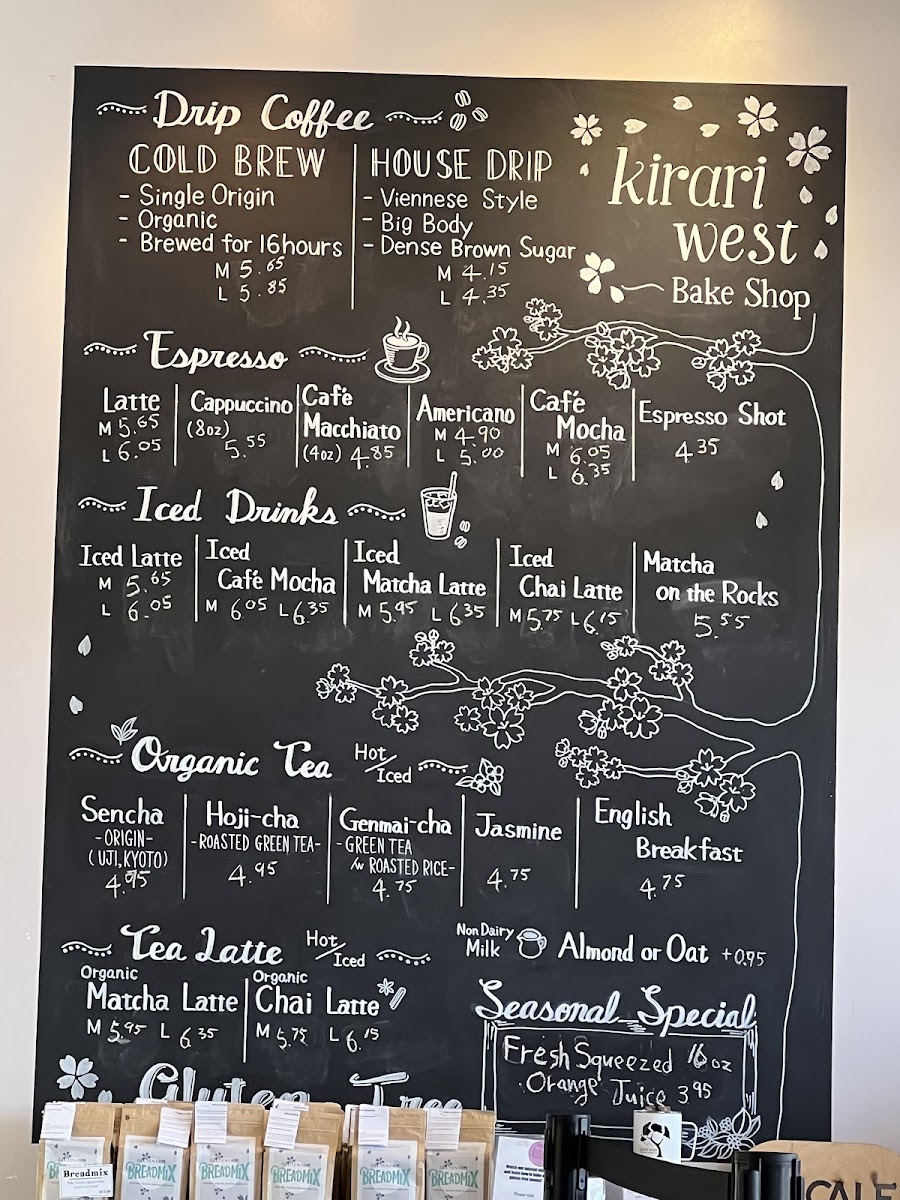 Drip Coffee
COLD BREW
- Single Origin
- Organic
- Brewed for 16hours
M 5.65
L 5.85
HOUSE DRIP
- Viennese Style
- Big Body
- Dense Brown Sugar
M 4.15
L 4.35
kirari
west
Bake Shop
Espresso
Latte
M 5.65
L 6.05
Cappuccino
(8oz)
5.55
Café
Macchiato
(4oz) 4.85
Americano
M 4.90
L 5.00
Café
Mocha
M 6.05
L 6.35
Espresso Shot
4.35
Iced Drinks
Iced Latte
M 5.65
L 6.05
Iced
Café Mocha
M 6.05 L 6.35
Iced
Matcha Latte
M 5.95 L 6.35
Iced
Chai Latte
M 5.75 L 6.15
Matcha
on the Rocks
5.55
Organic Tea Hot/Iced
Sencha
-ORIGIN-
(UJI, KYOTO)
4.95
Hoji-cha
-ROASTED GREEN TEA-
4.95
Genmai-cha
-GREEN TEA
/w ROASTED RICE-
4.75
Jasmine
4.75
English
Breakfast
4.75
Tea Latte Hot/Iced
Organic
Matcha Latte
M 5.95 L 6.35
Organic
Chai Latte
M 5.75 L 6.15
Non Dairy
Milk
Almond or Oat +0.95
Seasonal Special
Fresh Squeezed 16oz
Orange Juice 3.95
Gluten Free
BREADMIX
BREADMIX
BREADMIX
BREADMIX
BREADMIX
Breadmix